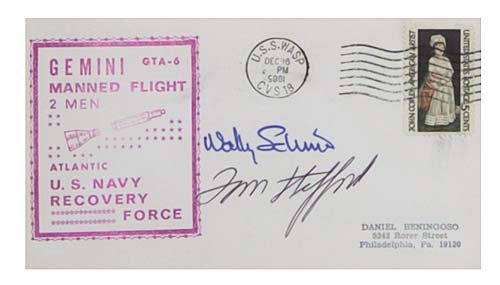 GEMINI GTA-6
MANNED FLIGHT
2 MEN
ATLANTIC
U.S. NAVY
RECOVERY
FORCE
U.S.S. WASP
DEC 16
PM
CVS 18
JOHN COPLEY AMERICAN ARTIST
UNITED STATES POSTAGE 5 CENTS
Wally Schirra
Tom Stafford
DANIEL BENINGOSO
5243 Rorer Street
Philadelphia, Pa. 19120